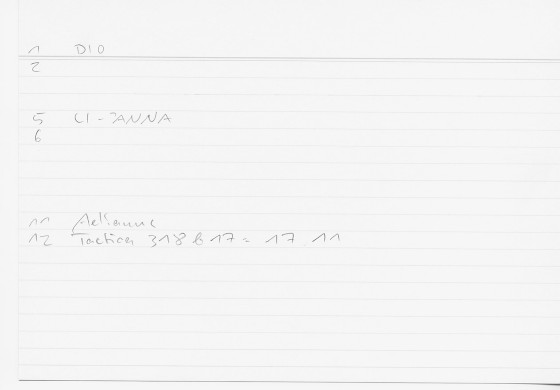 1 DIO
2
5 LI-ZANNA
6
11 Aelianus
12 Tactica 318 b 17 = 17 11